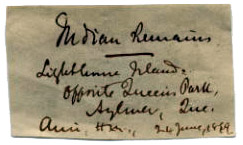 Indian Remains
Lighthouse Island.
Opposite Queen's Park,
Aylmer, Que.
24 June, 1899